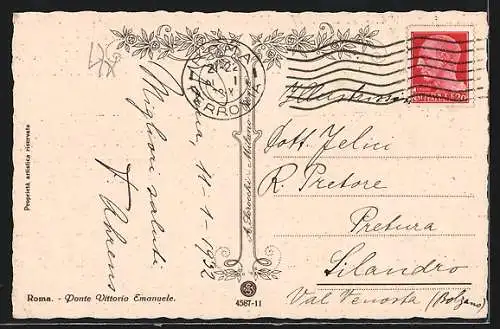 ROMA
FERROVIA
Roma, 11-1-1932
Migliori saluti
F. Ahrens
Proprietà artistica riservata
Roma. - Ponte Vittorio Emanuele.
4587-11
Illustrissimo
Dott. Felici
R. Pretore
Pretura
Silandro
Val Venosta (Bolzano)